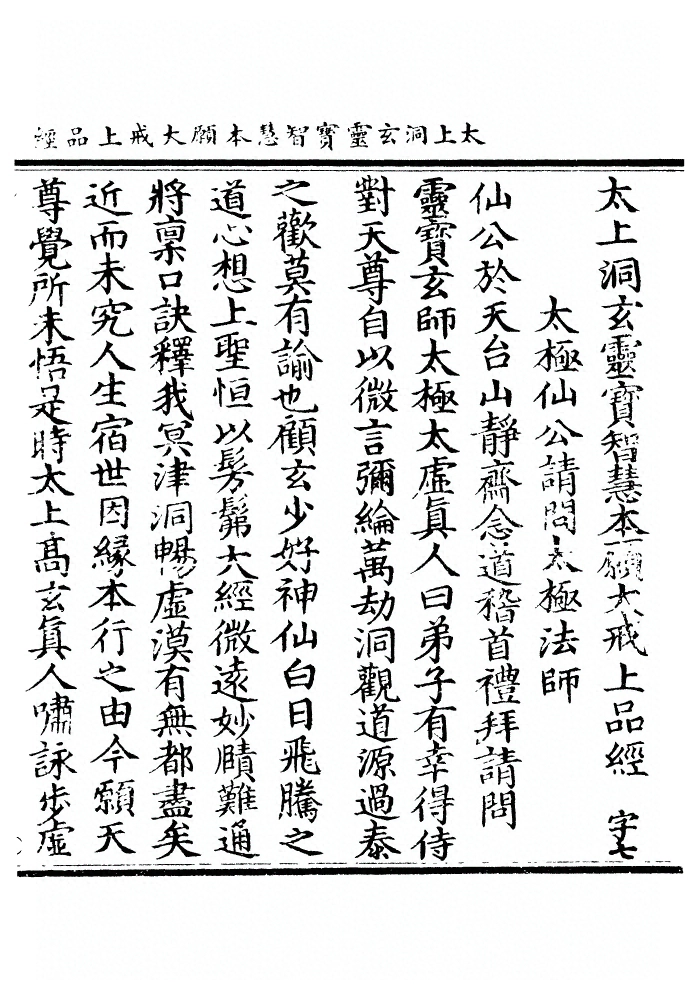 太上洞玄靈寶智慧本願大戒上品經
太上洞玄靈寶智慧本願大戒上品經 字七
太極仙公請問太極法師
仙公於天台山靜齋念道稽首禮拜請問
靈寶玄師太極太虛眞人曰弟子有幸得侍
對天尊自以微言彌綸萬劫洞觀道源過泰
之歡莫有諭也顧玄少好神仙白日飛騰之
道心想上聖恒以髣髴大經微遠妙賾難通
將稟口訣釋我冥津洞暢虛漠有無都盡矣
近而未究人生宿世因緣本行之由今願天
尊覺所未悟是時太上高玄眞人嘯詠步虛